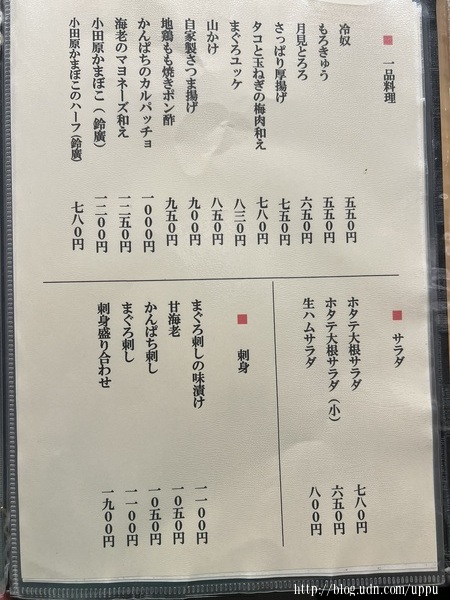 一品料理
冷奴 五五０円
もろきゅう 五五０円
月見とろろ 六五０円
さっぱり厚揚げ 七五０円
タコと玉ねぎの梅肉和え 七八０円
まぐろユッケ 八三０円
山かけ 八五０円
自家製さつま揚げ 九００円
地鶏もも焼きポン酢 九五０円
かんぱちのカルパッチョ 一０００円
海老のマヨネーズ和え 一二五０円
小田原かまぼこ（鈴廣） 一二００円
小田原かまぼこのハーフ（鈴廣） 七八０円
サラダ
ホタテ大根サラダ 七八０円
ホタテ大根サラダ（小） 六五０円
生ハムサラダ 八００円
刺身
まぐろ刺しの味漬け 一一００円
甘海老 一０五０円
かんぱち刺し 一０五０円
まぐろ刺し 一一００円
刺身盛り合わせ 一九００円
http://blog.udn.com/uppu